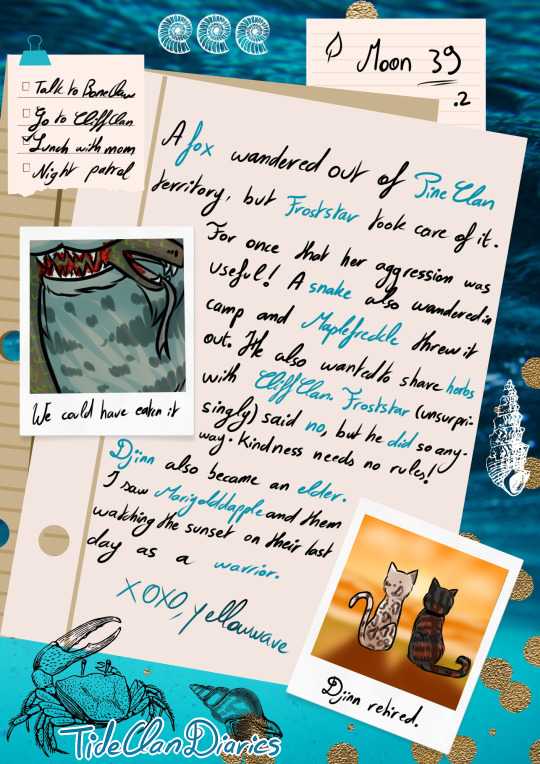 Moon 39
.2
Talk to BoneClaw
Go to CliffClan
Lunch with mom
Night patrol
A fox wandered out of PineClan
territory, but Froststar took care of it.
For once that her aggression was
useful! A snake also wandered in
camp and Maplefreckle threw it
out. He also wanted to share herbs
with CliffClan. Froststar (unsurpri-
singly) said no, but he did so any-
way. Kindness needs no rules!
Djinn also became an elder.
I saw Marigolddapple and them
watching the sunset on their last
day as a warrior.
XOXO, Yellowwave
We could have eaten it
Djinn retired.
TideClanDiaries